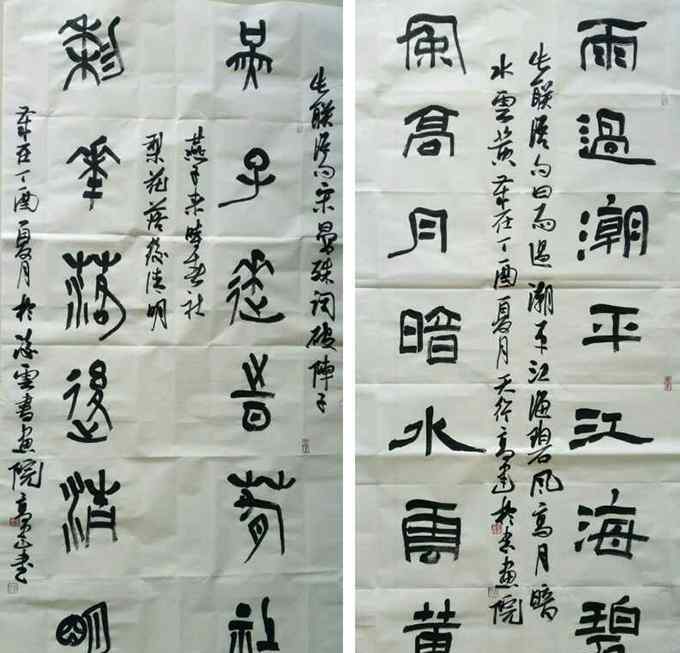 燕子來時春社
出聯語句宋晏殊詞破陣子
燕子來時春社
梨花落後清明
梨花落後清明
歲在丁酉夏月於慈雲書畫院高建書
雨過潮平江海碧
出聯語句曰雨過潮平江海碧風高月暗
水雲黃歲在丁酉夏月天行高建於書畫院
風高月暗水雲黃